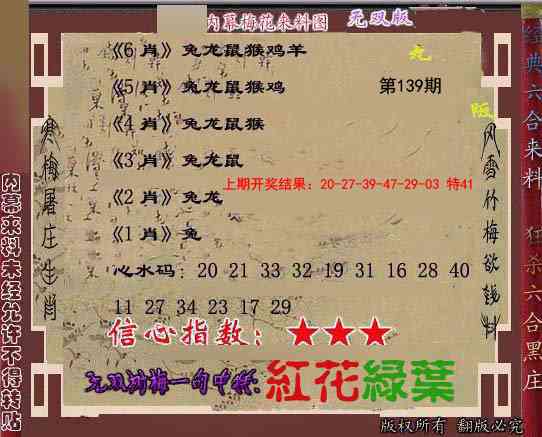 内幕梅花来料图 无双版
《6 肖》兔龙鼠猴鸡羊
《5 肖》兔龙鼠猴鸡
第139期
《4 肖》兔龙鼠猴
《3 肖》兔龙鼠
上期开奖结果: 20-27-39-47-29-03 特41
《2 肖》兔龙
《1 肖》兔
心水码: 20 21 33 32 19 31 16 28 40
11 27 34 23 17 29
信心指数: ★★★
无双剑梅一句中特:紅花緑葉
版权所有 翻版必究
寒梅屠庄生肖
风雪竹梅欲钱料
内幕来料未经允许不得转贴
经典六合来料 狂杀六合黑庄